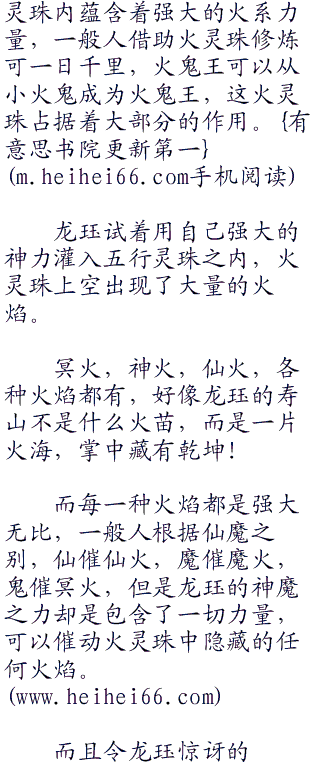 灵珠内蕴含着强大的火系力
量，一般人借助火灵珠修炼
可一日千里，火鬼王可以从
小火鬼成为火鬼王，这火灵
珠占据着大部分的作用。{有
意思书院更新第一}
(m.heihei66.com手机阅读)
龙珏试着用自己强大的
神力灌入五行灵珠之内，火
灵珠上空出现了大量的火
焰。
冥火，神火，仙火，各
种火焰都有，好像龙珏的寿
山不是什么火苗，而是一片
火海，掌中藏有乾坤！
而每一种火焰都是强大
无比，一般人根据仙魔之
别，仙催仙火，魔催魔火，
鬼催冥火，但是龙珏的神魔
之力却是包含了一切力量，
可以催动火灵珠中隐藏的任
何火焰。
(www.heihei66.com)
而且令龙珏惊讶的